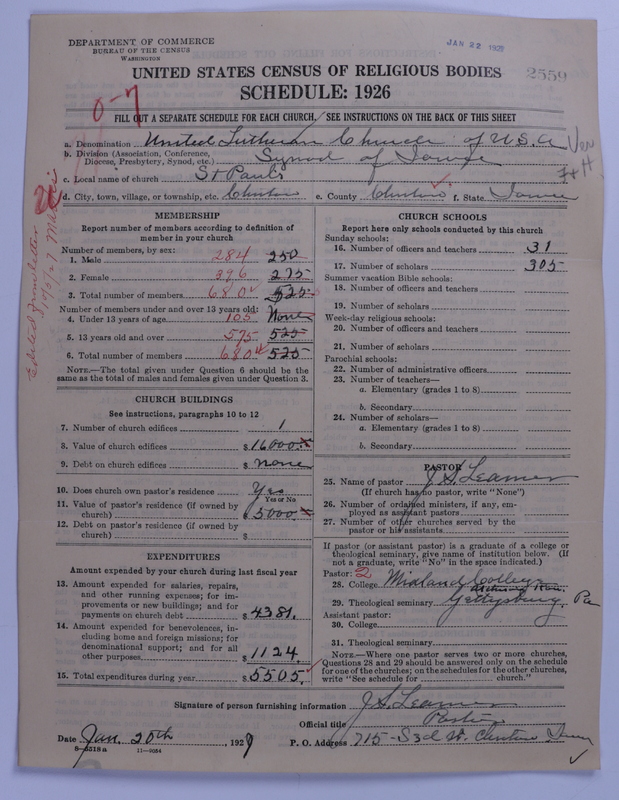 DEPARTMENT OF COMMERCE
BUREAU OF THE CENSUS
WASHINGTON
JAN 22 192
UNITED STATES CENSUS OF RELIGIOUS BODIES
SCHEDULE: 1926
2559
0-7
FILL OUT A SEPARATE SCHEDULE FOR EACH CHURCH. SEE INSTRUCTIONS ON THE BACK OF THIS SHEET
a. Denomination United Lutheran Church of U.S.A
b. Division (Association, Conference, Diocese, Presbytery, Synod, etc.) Synod of Iowa
c. Local name of church St Pauls
d. City, town, village, or township, etc. Clinton e. County Clinton f. State Iowa
MEMBERSHIP
Report number of members according to definition of member in your church
Number of members, by sex:
1. Male 284 250
2. Female 396 275
3. Total number of members 680 525
Number of members under and over 13 years old:
4. Under 13 years of age 105 None
5. 13 years old and over 575 525
6. Total number of members 680 525
NOTE.—The total given under Question 6 should be the same as the total of males and females given under Question 3.
CHURCH BUILDINGS
See instructions, paragraphs 10 to 12
7. Number of church edifices 1
8. Value of church edifices $ 16000
9. Debt on church edifices $ None
10. Does church own pastor's residence Yes
Yes or No
11. Value of pastor's residence (if owned by church) $ 5000
12. Debt on pastor's residence (if owned by church) $
EXPENDITURES
Amount expended by your church during last fiscal year
13. Amount expended for salaries, repairs, and other running expenses; for improvements or new buildings; and for payments on church debt $ 4381.
14. Amount expended for benevolences, including home and foreign missions; for denominational support; and for all other purposes $ 1124
15. Total expenditures during year $ 5505
CHURCH SCHOOLS
Report here only schools conducted by this church
Sunday schools:
16. Number of officers and teachers 31
17. Number of scholars 305
Summer vacation Bible schools:
18. Number of officers and teachers
19. Number of scholars
Week-day religious schools:
20. Number of officers and teachers
21. Number of scholars
Parochial schools:
22. Number of administrative officers
23. Number of teachers—
a. Elementary (grades 1 to 8)
b. Secondary
24. Number of scholars—
a. Elementary (grades 1 to 8)
b. Secondary
PASTOR
25. Name of pastor J. S. Leamer
(If church has no pastor, write "None")
26. Number of ordained ministers, if any, employed as assistant pastors
27. Number of other churches served by the pastor or his assistants
If pastor (or assistant pastor) is a graduate of a college or theological seminary, give name of institution below. (If not a graduate, write "No" in the space indicated.)
Pastor: 2
28. College Midland College
Atchison Kan.
29. Theological seminary Gettysburg, Pa
Assistant pastor:
30. College
31. Theological seminary
NOTE.—Where one pastor serves two or more churches, Questions 28 and 29 should be answered only on the schedule for one of the churches; on the schedules for the other churches, write "See schedule for church."
Signature of person furnishing information J. S. Leamer
Official title Pastor
Date Jan. 20th, 1927 P. O. Address 715-S 3d St. Clinton Iowa
8-5318a 11-9084